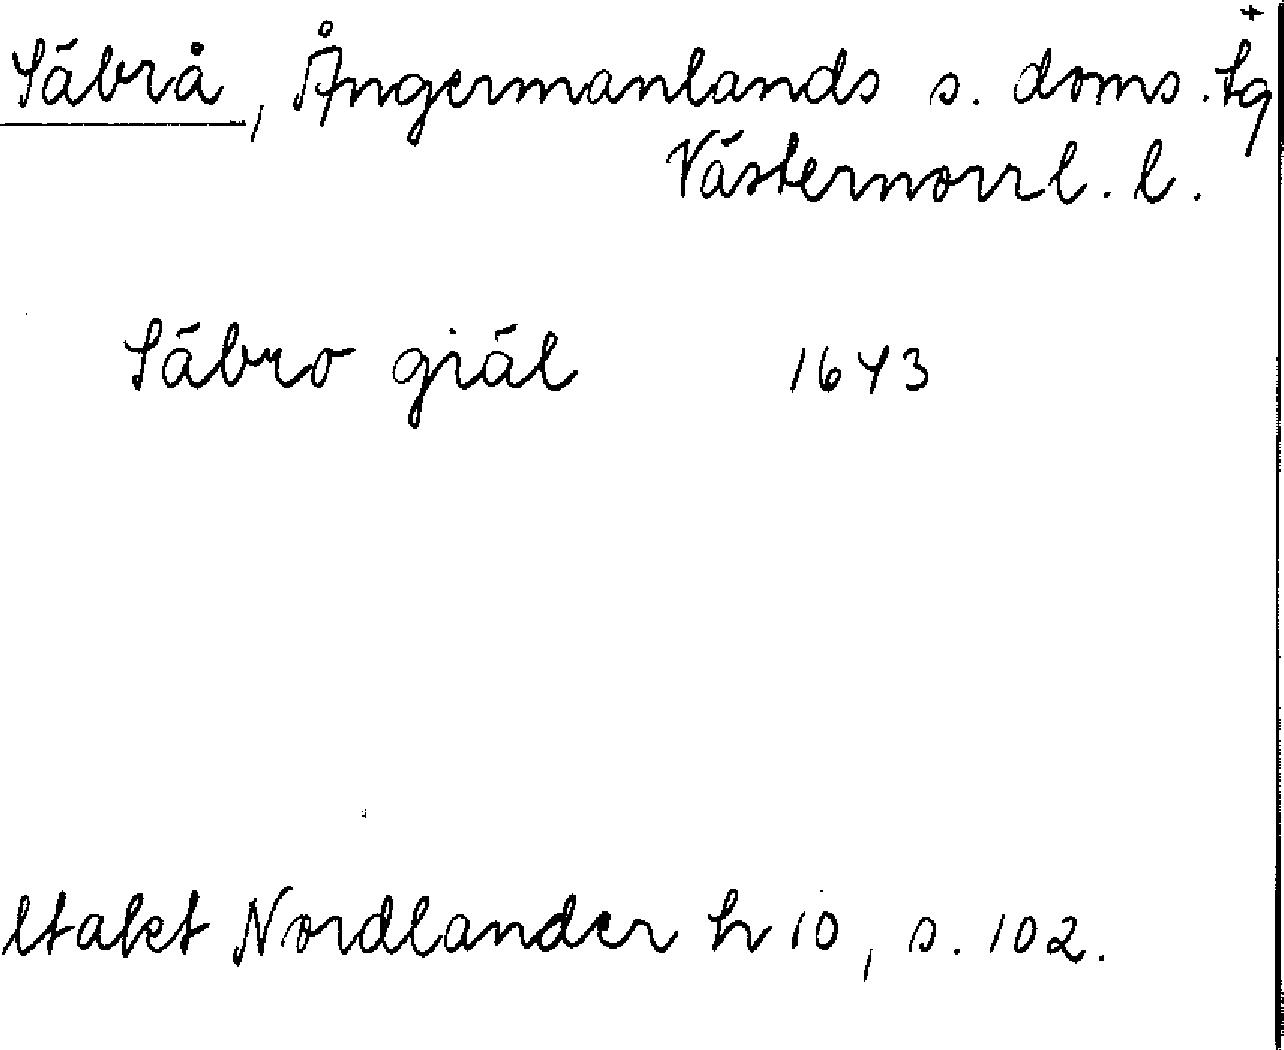 Säbrå, Ångermanlands s. doms. tg +
Västernorrl. l.
Säbro giäl 1643
ltakt Nordlander h 10, s. 102.